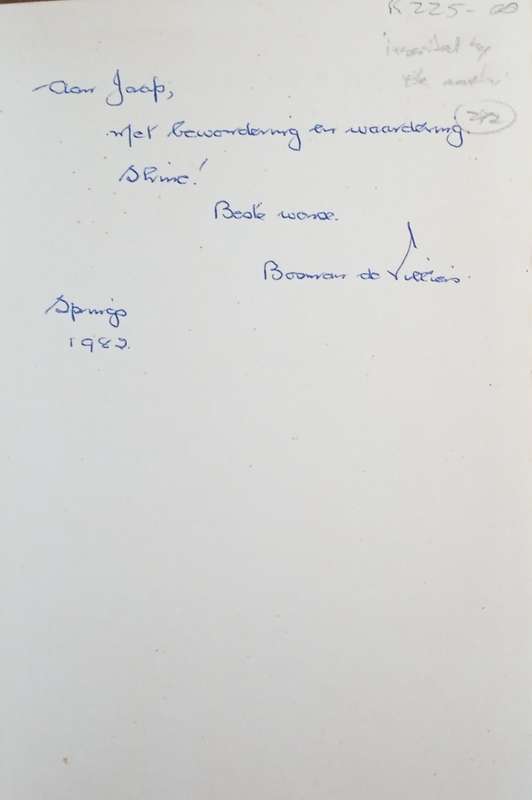 R225-00
inscribed by
the author
272
Aan Jaap,
Met bewondering en waardering.
Shine!
Beste wense.
Booman de Villiers.
Springs
1982.